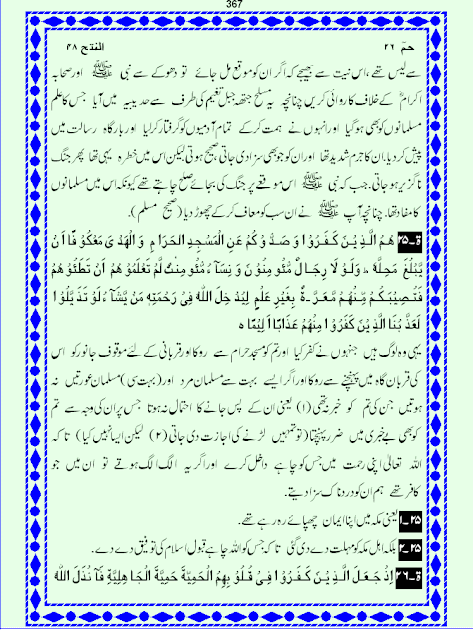 367
حم ٢٦ الفتح ٤٨
سے لیس تھے، اس نیت سے بھیجے کہ اگر ان کو موقع مل جائے تو دھوکے سے نبی ﷺ اور صحابہ
اکرامؓ کے خلاف کاروائی کریں چنانچہ یہ مسلح جتھہ جبل تنعیم کی طرف سے حدیبیہ میں آیا جس کا علم
مسلمانوں کو بھی ہوگیا اور انہوں نے ہمت کرکے تمام آدمیوں کو گرفتار کرلیا اور بارگاہ رسالت میں
پیش کردیا۔ ان کا جرم شدید تھا اور ان کو جو بھی سزا دی جاتی، صحیح ہوتی لیکن اس میں خطرہ یہی تھا پھر جنگ
ناگزیر ہوجاتی۔ جب کہ نبی ﷺ اس موقعے پر جنگ کی بجائے صلح چاہتے تھے کیونکہ اس میں مسلمانوں
کا مفاد تھا۔ چنانچہ آپ ﷺ نے ان سب کو معاف کرکے چھوڑ دیا (صحیح مسلم)۔
ق-٢٥ هُمُ الَّذِيْنَ كَفَرُوْا وَصَدُّوْكُمْ عَنِ الْمَسْجِدِ الْحَرَامِ وَالْهَدْىَ مَعْكُوْفًا اَنْ
يَّبْلُغَ مَحِلَّهٗ ؕ وَلَوْ لَا رِجَالٌ مُّؤْمِنُوْنَ وَنِسَآءٌ مُّؤْمِنٰتٌ لَّمْ تَعْلَمُوْهُمْ اَنْ تَطَئُوْهُمْ
فَتُصِيْبَكُمْ مِّنْهُمْ مَّعَرَّةٌۢ بِغَيْرِ عِلْمٍ لِيُدْخِلَ اللّٰهُ فِىْ رَحْمَتِهٖ مَنْ يَّشَآءُ لَوْ تَزَيَّلُوْا
لَعَذَّبْنَا الَّذِيْنَ كَفَرُوْا مِنْهُمْ عَذَابًا اَلِيْمًا ه
یہی وہ لوگ ہیں جنہوں نے کفر کیا اور تم کو مسجد حرام سے روکا اور قربانی کے لئے موقوف جانور کو اس
کی قربان گاہ میں پہنچنے سے روکا اور اگر ایسے بہت سے مسلمان مرد اور (بہت سی) مسلمان عورتیں نہ
ہوتیں جن کی تم کو خبر نہ تھی (١) یعنی ان کے پس جانے کا احتمال نہ ہوتا جس پر ان کی وجہ سے تم
کو بھی بے خبری میں ضرر پہنچتا (تو تمہیں لڑنے کی اجازت دی جاتی (٢) لیکن ایسا نہیں کیا) تاکہ
اللہ تعالٰی اپنی رحمت میں جس کو چاہے داخل کرے اور اگر یہ الگ الگ ہوتے تو ان میں جو
کافر تھے ہم ان کو دردناک سزا دیتے۔
٢٥-١ یعنی مکہ میں اپنا ایمان چھپائے رہ رہے تھے۔
٢٥-٢ بلکہ اہل مکہ کو مہلت دے دی گئی تاکہ جس کو اللہ چاہے قبول اسلام کی توفیق دے دے۔
ق-٢٦ اِذْ جَعَلَ الَّذِيْنَ كَفَرُوْا فِىْ قُلُوْبِهِمُ الْحَمِيَّةَ حَمِيَّةَ الْجَاهِلِيَّةِ فَاَنْزَلَ اللّٰهُ